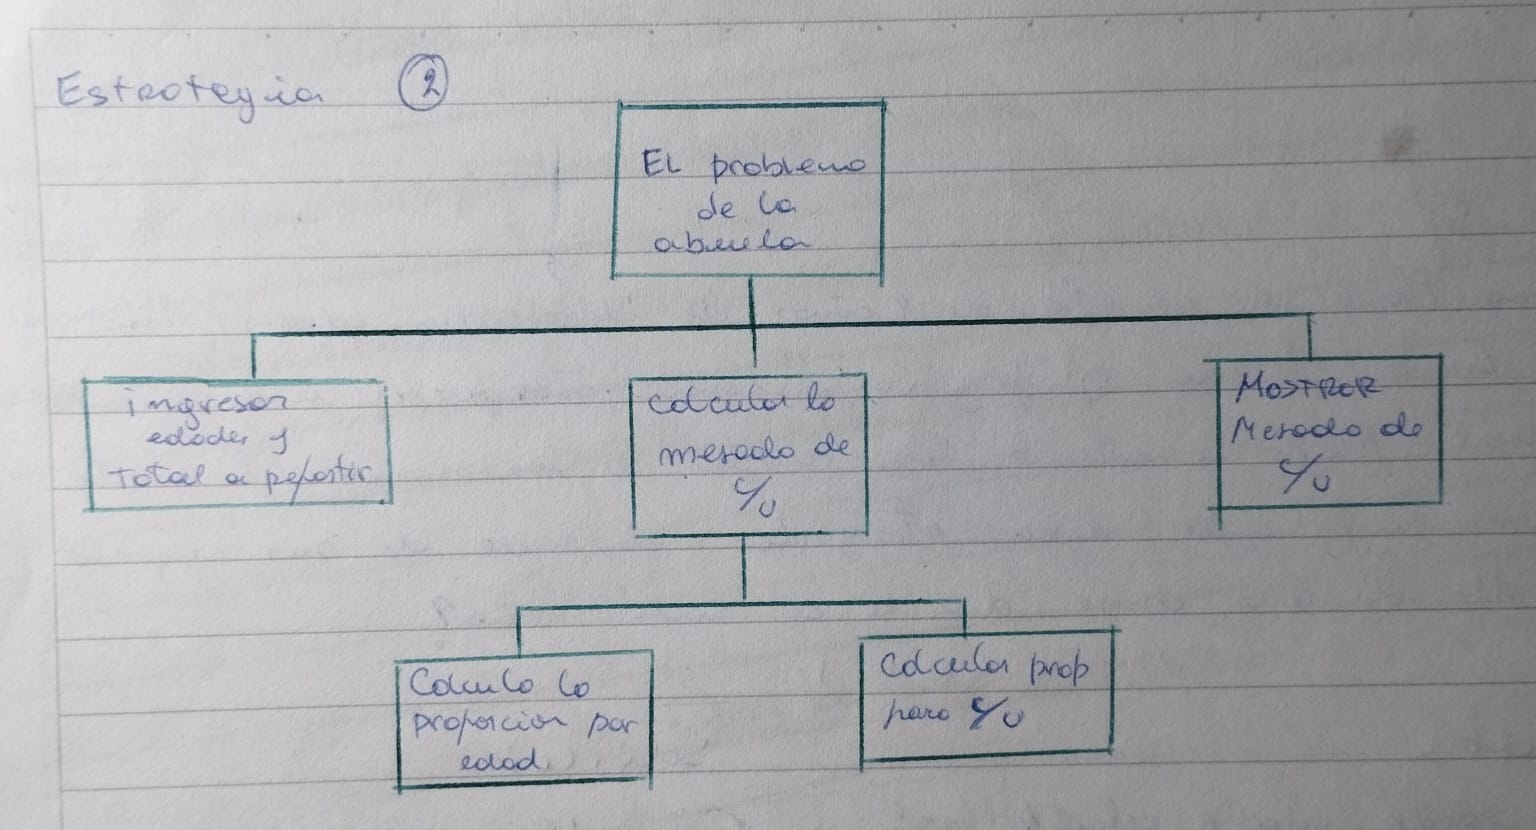 Estrategia 2
El problema
de la
abuela
ingresar
edades y
total a repartir
calcular la
mesada de
c/u
MOSTRAR
Mesada de
c/u
Calculo la
proporcion por
edad.
Calcular prop
para c/u